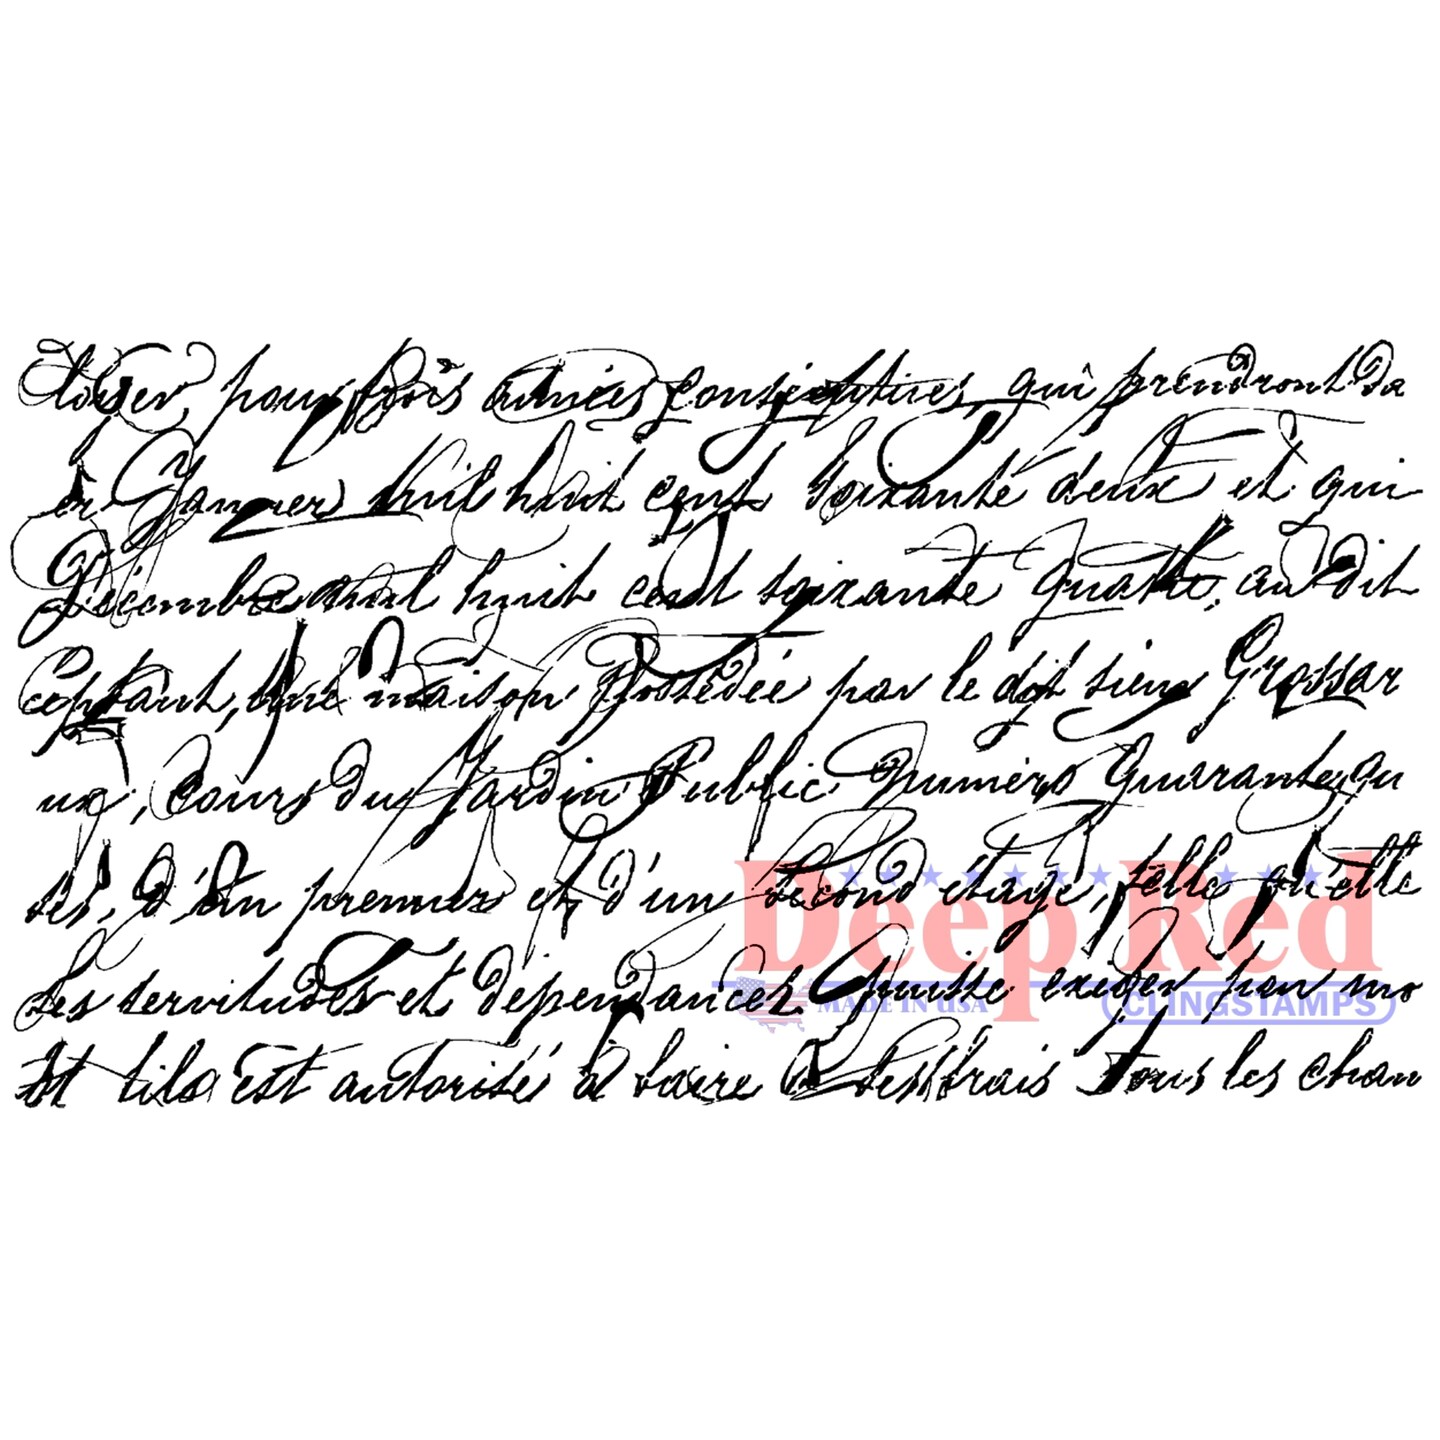 louer, pour trois années consécutives, qui prendront da
er Janvier mil huit cent soixante deux et qui
Décembre mil huit cent soixante quatre, au dit
ceptant, une maison possédée par le dit sieur Grossar
ux, Cours du Jardin Public Numéro Quarante, qu
sés, d'un premier et d'un second étage, telle qu'elle
les servitudes et dépendances puisse exiger par
est autorisé à faire à ses frais tous les chan
Deep Red
MADE IN USA
CLINGSTAMPS